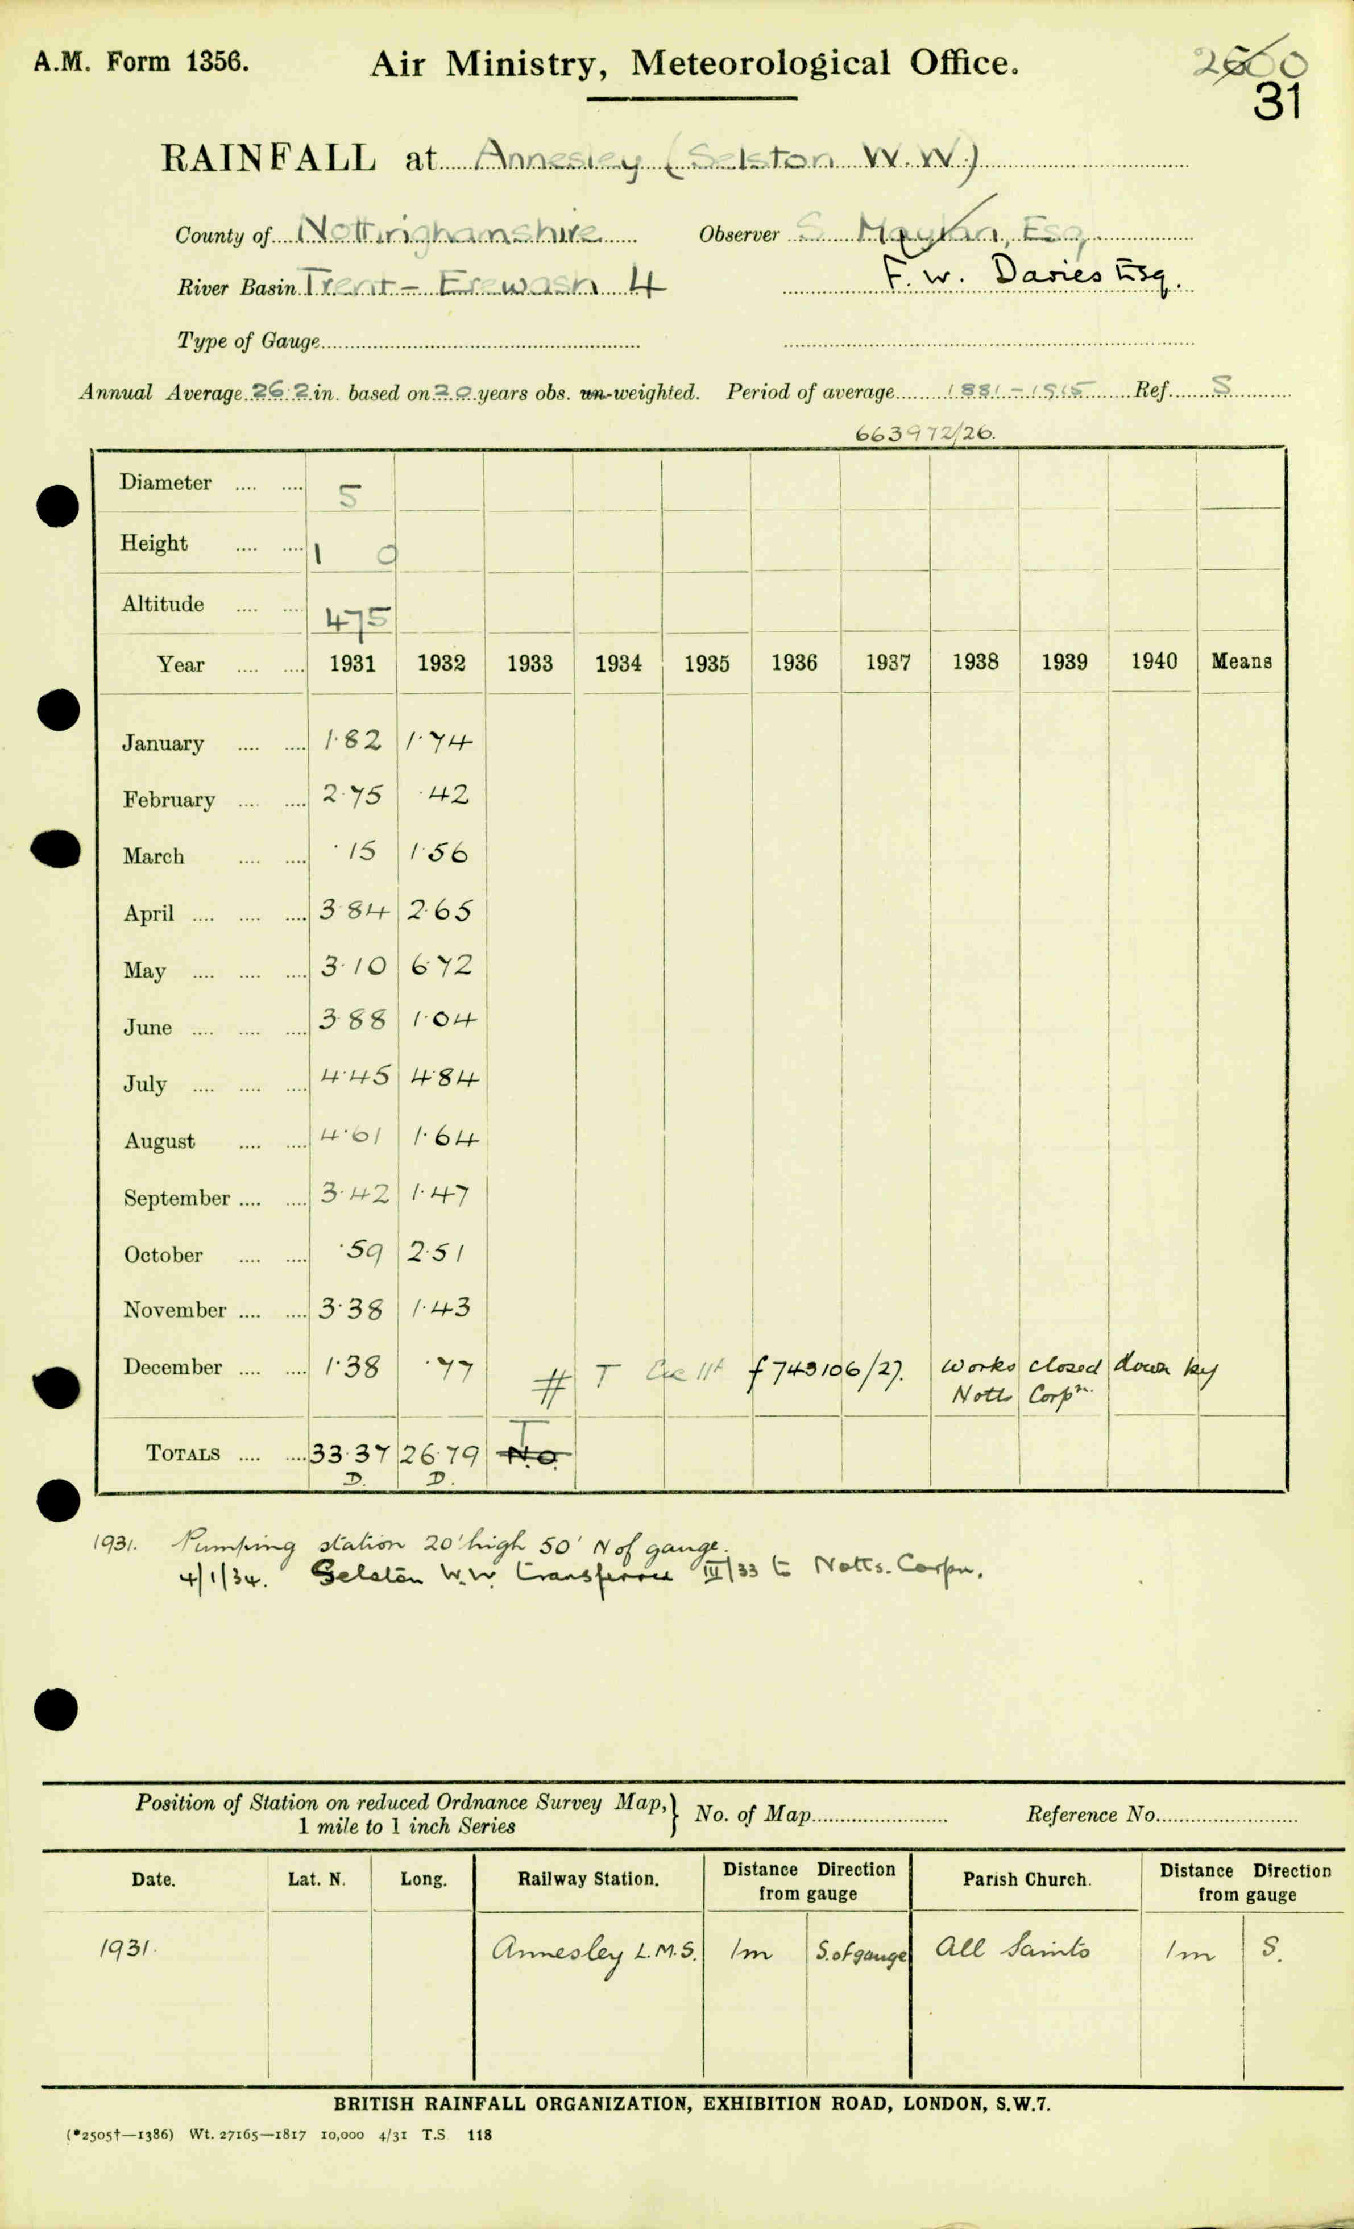 A.M. Form 1356.
Air Ministry, Meteorological Office.
31
RAINFALL at Annesley (Selston W.W.)
County of Nottinghamshire Observer S. Maylan, Esq.
River Basin Trent - Erewash 4 F. W. Davies Esq.
Type of Gauge
Annual Average 26.2 in. based on 20 years obs. un-weighted. Period of average 1881-1915 Ref. S
663972/26.
Diameter .... .... 5
Height .... .... 1 0
Altitude .... .... 475
Year .... .... 1931 1932 1933 1934 1935 1936 1937 1938 1939 1940 Means
January .... .... 1.82 1.74
February .... .... 2.75 .42
March .... .... .15 1.56
April .... .... .... 3.84 2.65
May .... .... .... 3.10 6.72
June .... .... .... 3.88 1.04
July .... .... .... 4.45 4.84
August .... .... 4.61 1.64
September .... .... 3.42 1.47
October .... .... .59 2.51
November .... .... 3.38 1.43
December .... .... 1.38 .77 # T f 743106/27. Works closed down by
Notts Corpn.
T
TOTALS .... .... 33.37 26.79 N.O.
D. D.
1931. Pumping station 20' high 50' N of gauge.
4/1/34. Selston W.W. transferred III/33 to Notts. Corpn.
Position of Station on reduced Ordnance Survey Map,} No. of Map Reference No.
1 mile to 1 inch Series
Date. Lat. N. Long. Railway Station. Distance Direction from gauge Parish Church. Distance Direction from gauge
1931. Annesley L.M.S. 1m S. of gauge All Saints 1m S.
BRITISH RAINFALL ORGANIZATION, EXHIBITION ROAD, LONDON, S.W.7.
(*2505†—1386) Wt. 27165—1817 10,000 4/31 T.S. 118